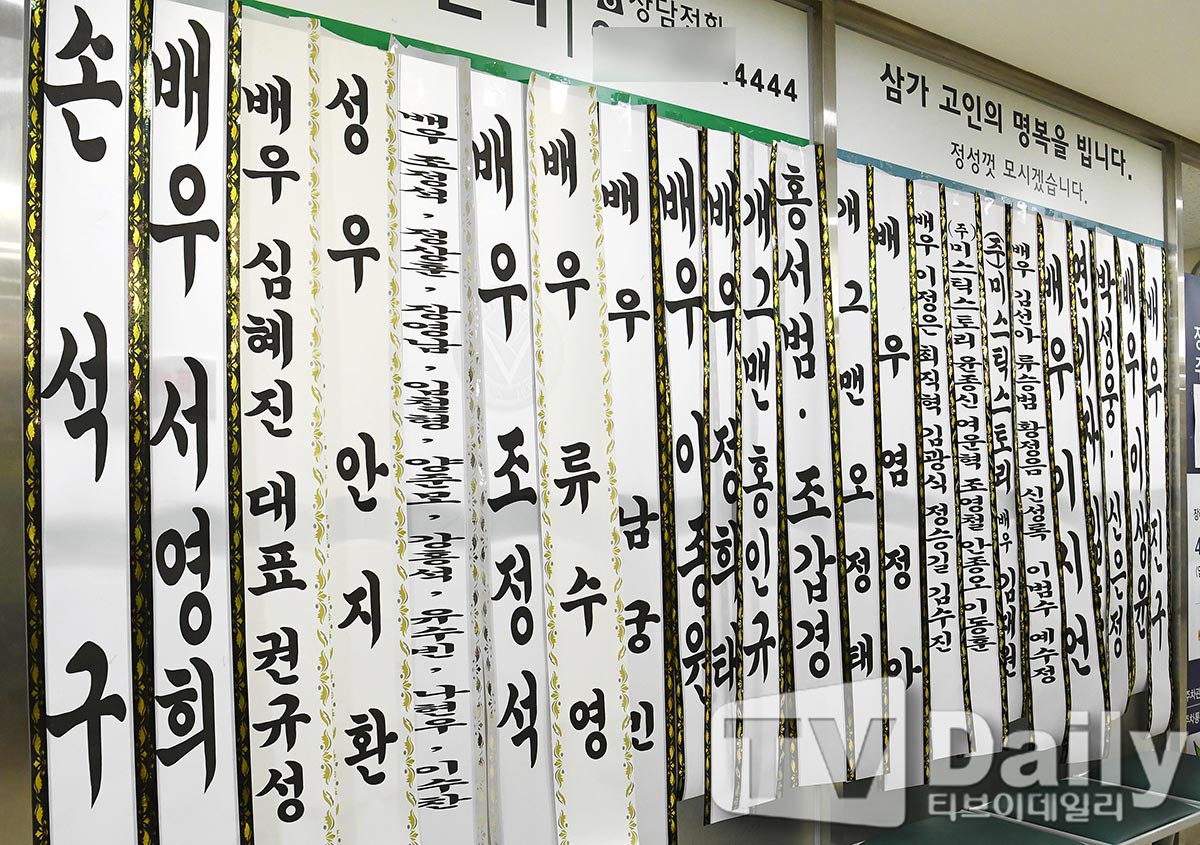 상담전화
4444
삼가 고인의 명복을 빕니다.
정성껏 모시겠습니다.
손석구
배우 서영희
배우 심혜진 대표 권규성
성우 안지환
배우
배우 조정석
배우 류수영
배우 남궁민
배우 이종원
배우 정희태
개그맨 홍인규
홍서범 · 조갑경
개그맨 오정태
배우 염정아
배우 이정은 최직혁 김광식 정승길 김수진
(주)미스틱스토리 윤종신 여운혁 조영철 안종오 이동훈
(주)미스틱스토리 배우 김태원
배우 김선아 류승범 황정음 신성록 이범수 예수정
배우 이시언
박성웅 · 신은정
배우 이상윤
배우 진구
TV Daily
티브이데일리